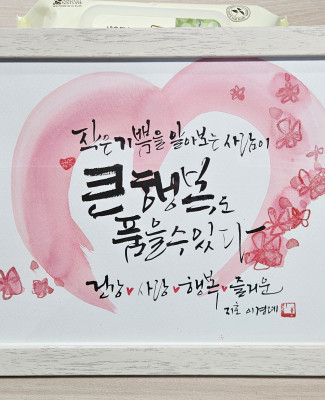 작은 기쁨을 알아보는 사람이
큰 행복도
품을 수 있다
건강 사랑 행복 즐거운